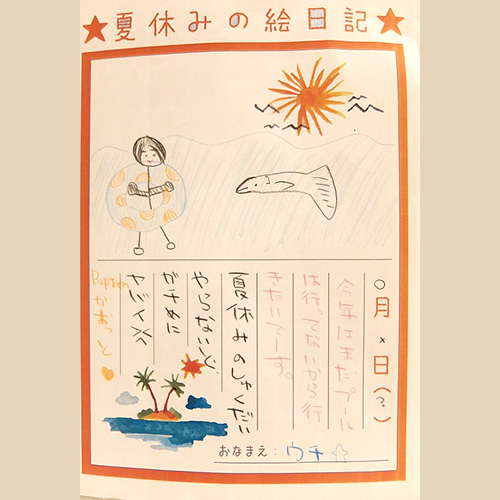 ★夏休みの絵日記★
〇月×日(?)
今年はまだプール
は行ってないから行
きたいでーす。
夏休みのしゅくだい
やらないと
ガチめに
ヤバイ××
Popteen
かまっと♥
おなまえ:ウチ☆